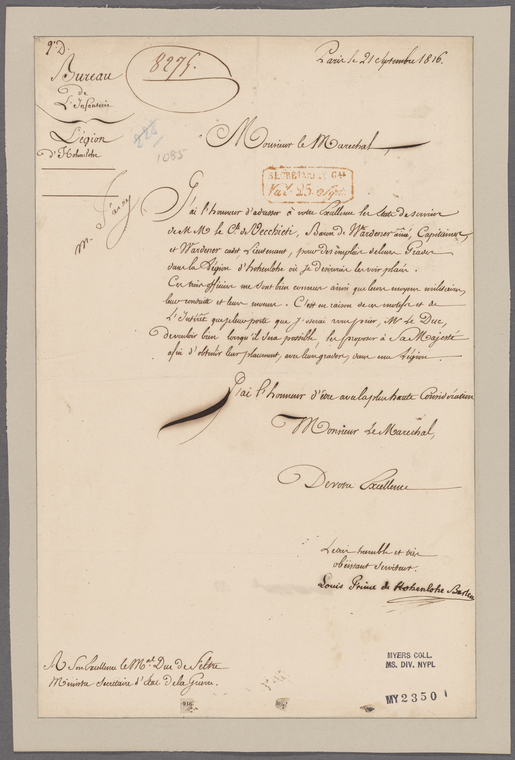 2e D.
8275.
Paris le 21 Septembre 1816.
Bureau
de
L'Infanterie
Légion
d'Hohenlohe
1085
Monsieur le Marechal,
SECRETARIAT Gal
25 Sept.
J'ai l'honneur d'adresser à votre Excellence les états de services
de M M. le Cte de Vecchieti, Baron de Wardener ainé, Capitaines
et Wardener cadet Lieutenant, pour des emplois de leurs Grades
dans la Légion d'hohenlohe où je desirerais les voir placés.
Ces trois officiers me sont bien connus ainsi que leurs moyens militaires,
leur conduite et leurs moeurs. C'est en raison de ces motifs et de
L'Intérêt que je leur porte que j'oserai vous prier, Mr. Le Duc,
de vouloir bien lorsqu'il sera possible, les proposer à Sa Majesté
afin d'obtenir leur placement, avec leurs grades, dans ma Légion.
J'ai l'honneur d'être avec la plus haute Considération
Monsieur Le Maréchal,
De votre Excellence
Le très humble et très
obéissant Serviteur.
Louis Prince de Hohenlohe Barten
A Son Excellence le Mal. Duc de Feltre
Ministre Secretaire d'état de la Guerre.
MYERS COLL.
MS. DIV. NYPL
MY 2350